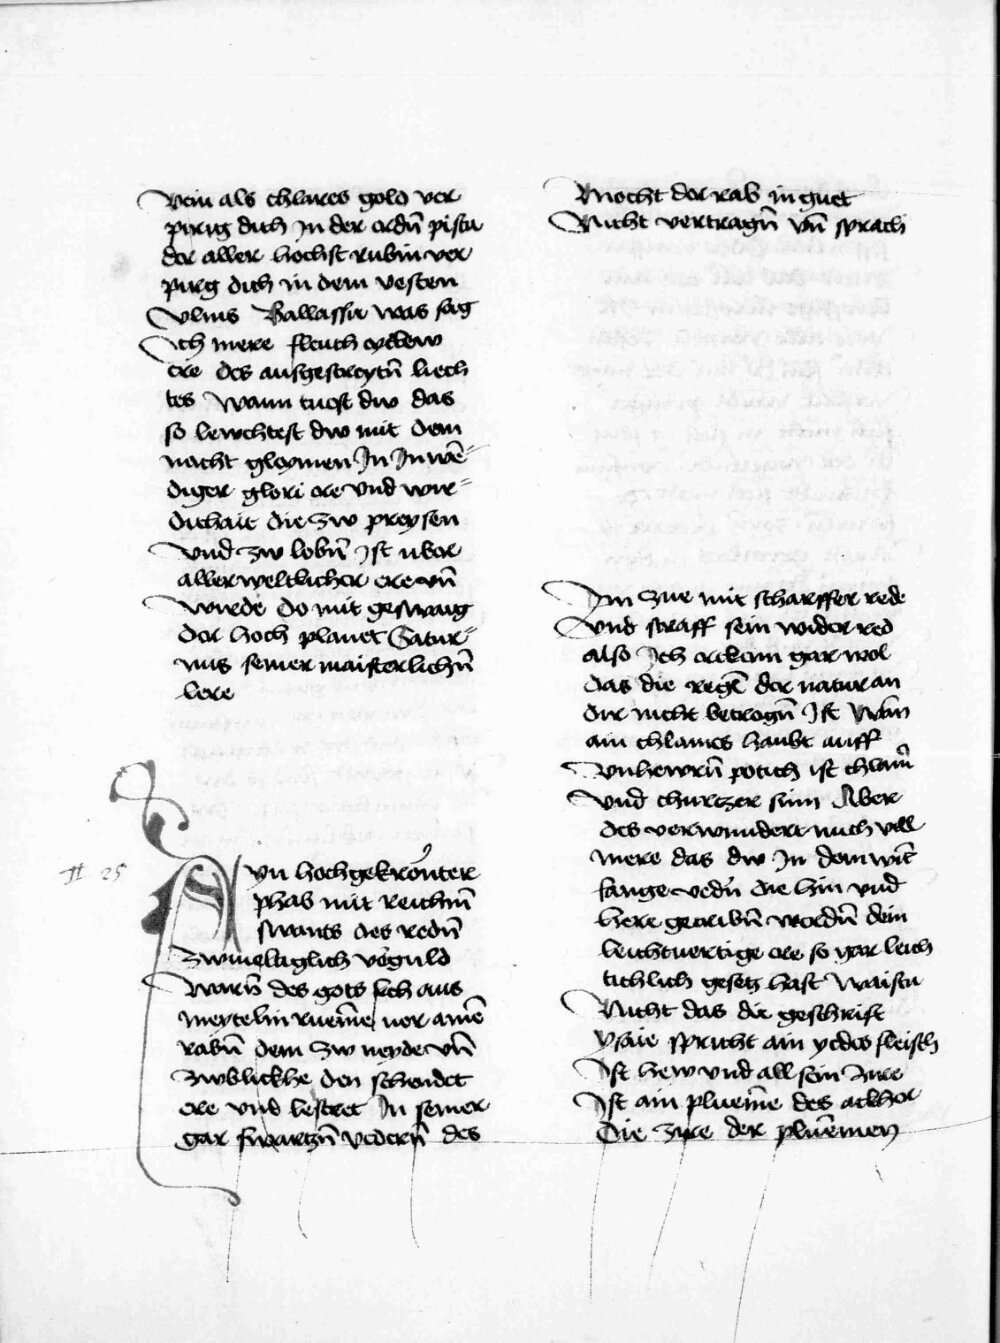 Vein als chlares gold ver
pirig dich in der ordñ pistu
der aller hochst rubin ver
pirg dich in dem vesten
Vlins Ballassir was sag
Ich mere fleuch yedew
ere des ausgestreytñ liech
tes Wann tuest dw das
so lewchtest dw mit dem
nacht gloymen In Inwē
diger glori ere vnd wir
dichait die zw preysen
vnd zw lobñ Ist vber
aller weltlicher ere vñ
wirde Do mit geswaig
der hoch planet Satur
nus seiner maisterlichñ
lere
II 25
Ayn hochgekrönter
phab mit reichñ
swants des redñ
Zwiueltiglich vbguld
Warñ des gots sich aus
meytelin rueme vor ainē
rabñ dem zw neyde vñ
zwblickhe den schendet
ere vnd lestret In seiner
gar swartzñ vedern des
Mocht der rab in guet
Nicht vertragñ vñ sprach
Im zue mit scharffer rede
Vnd straff sein wider red
also Ich erkenn gar wol
das die regel der natur an
dir nicht betrogñ Ist Wan
ain chlaines haubt auff
Vnhewrñ potich ist chlainˀ
Vnd churtzer sinn Aber
des verwundert mich vil
mere das dw In dem wit
fange vedñ die hin vnd
here geribñ werdñ dein
leichtuertige ere so gar leich
tichlich gesetz hast Waistu
Nicht das die geschrift
ysaie spricht ain yedes fleisch
Ist hew vnd all sein zire
Ist ain plueme des akher
Die zire der pluemen